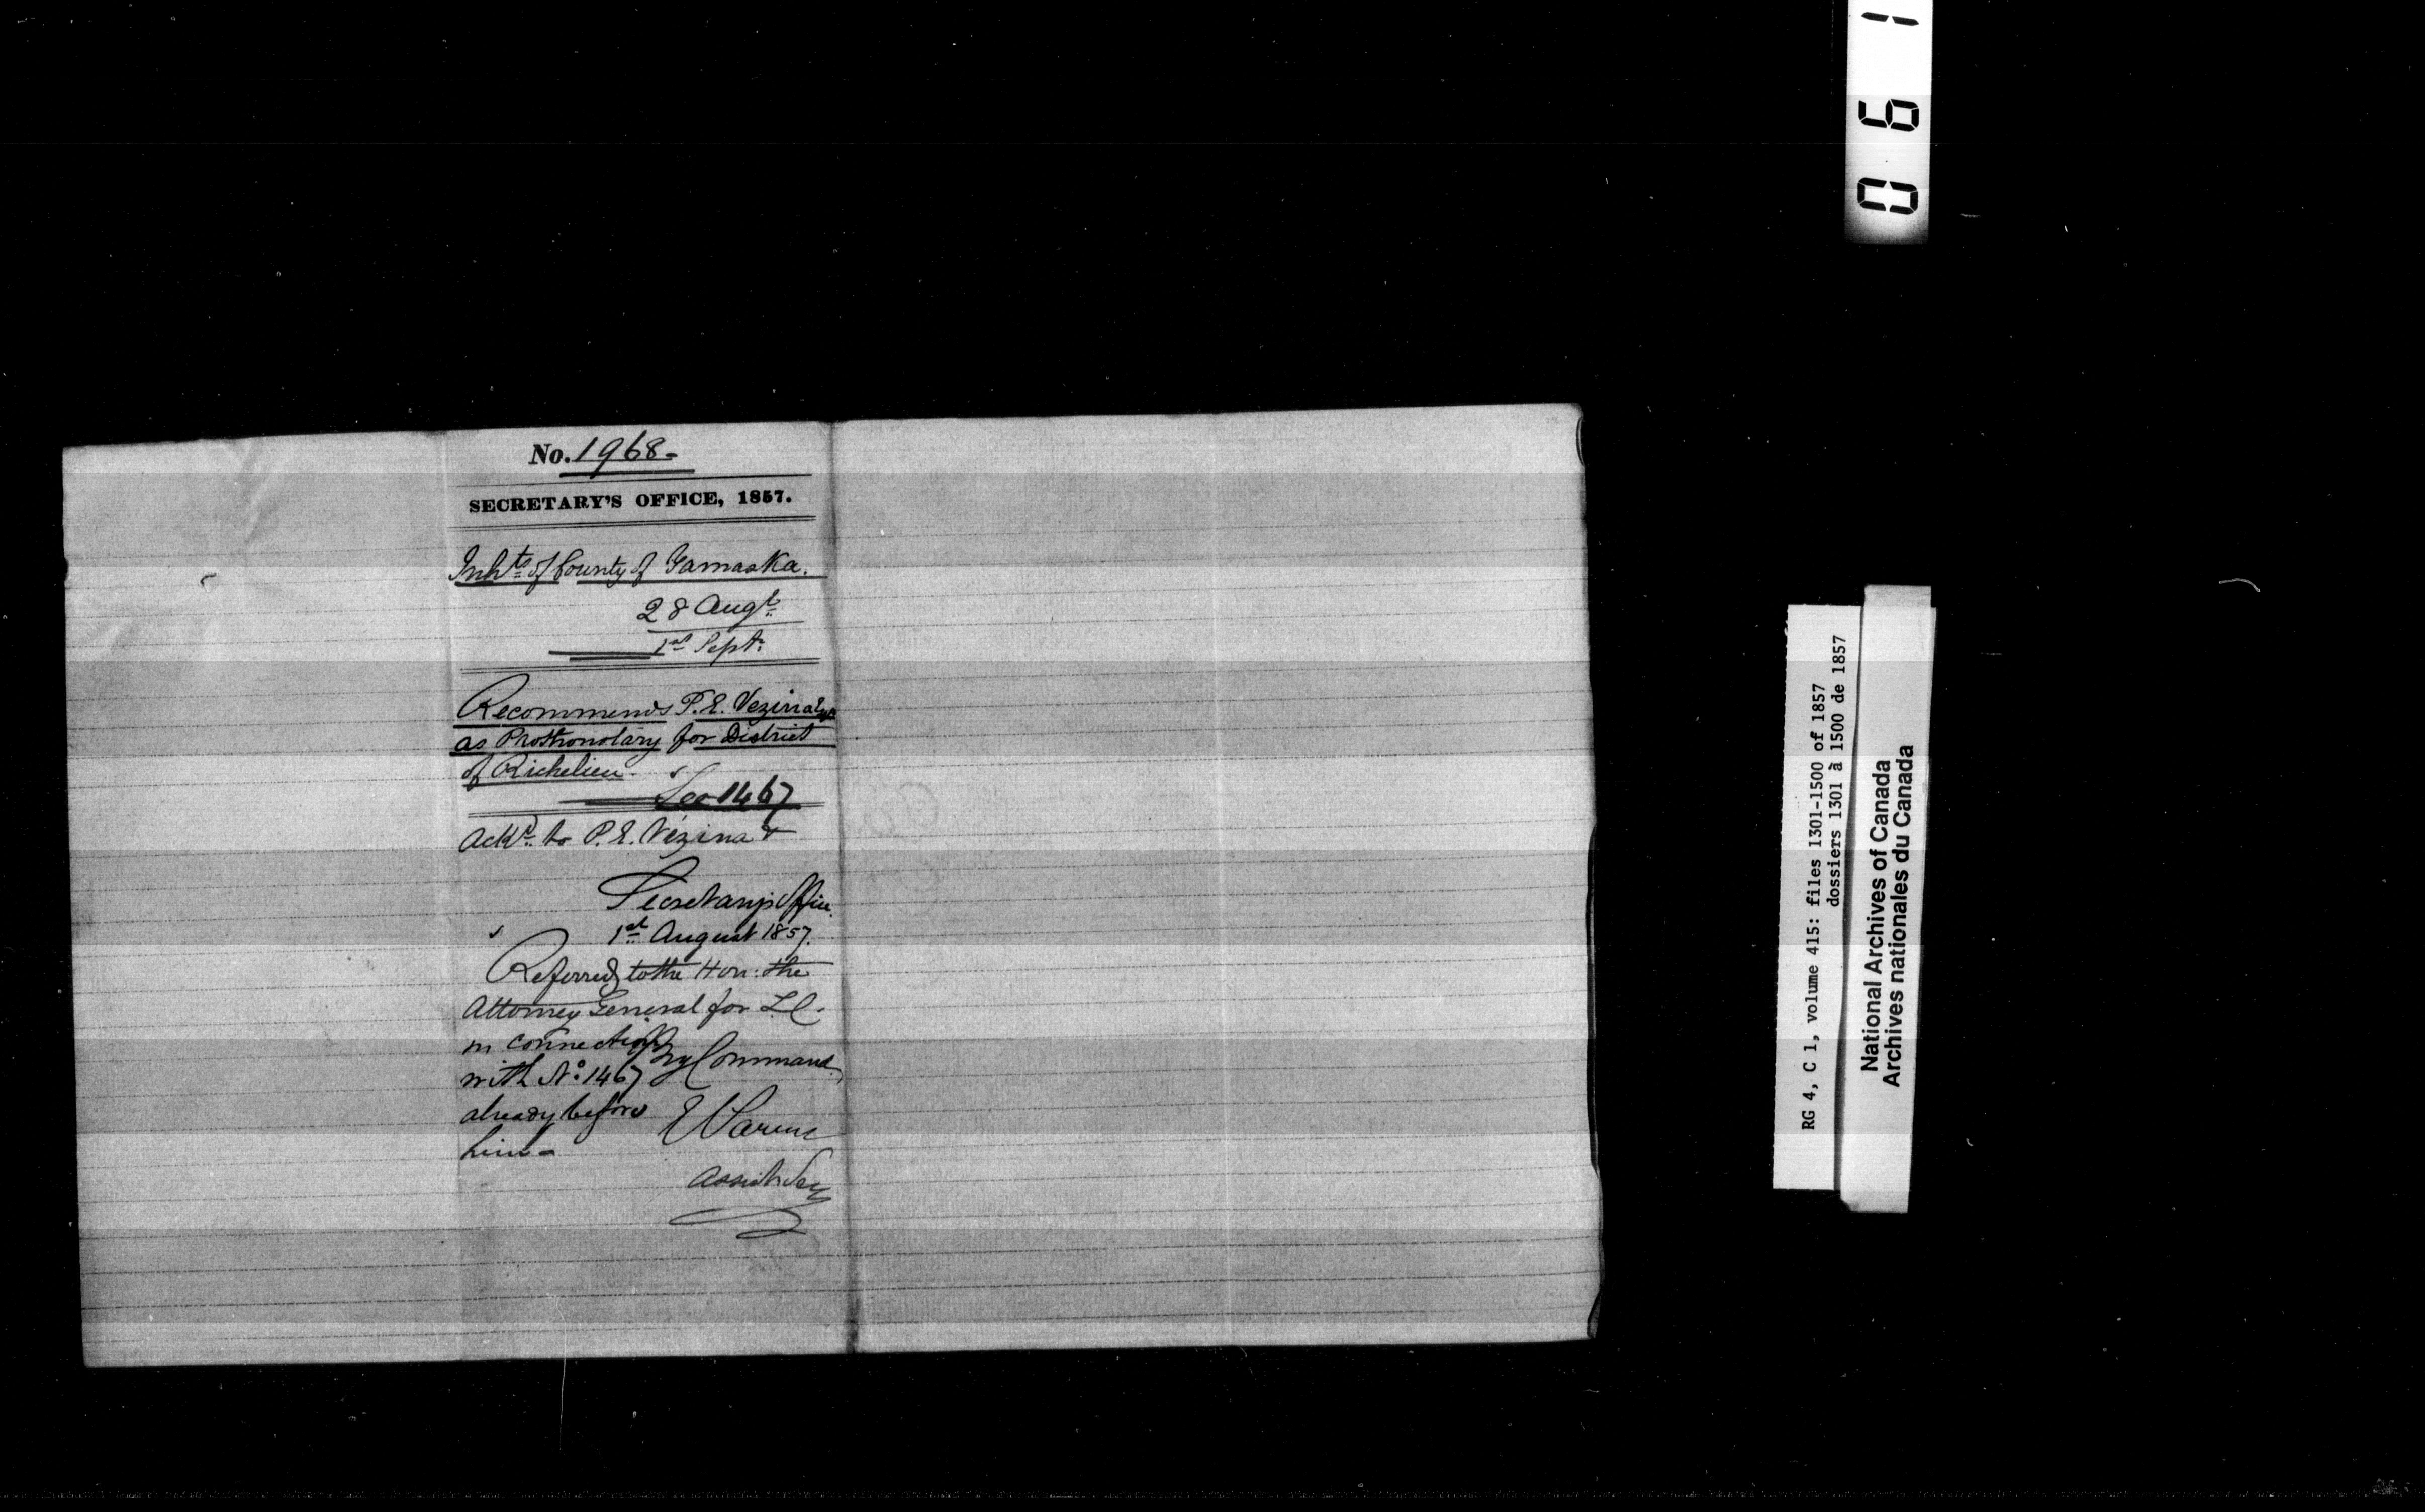 No. 1968-
SECRETARY'S OFFICE, 1857.
Inhts of County of Yamaska.
28 Augt
1st Sept.
Recommends P.E. Vezina Esqr
as Prothonotary for District
of Richelieu.
See 1467
Ackd to P.E. Vézina
Secretary's Office
1st August 1857.
Referred to the Hon: the
Attorney General for L.C.
in connection
with No. 1467
already before
him-
By Command
Assist Secy
0 6 1
RG 4, C 1, volume 415: files 1301-1500 of 1857
dossiers 1301 à 1500 de 1857
National Archives of Canada
Archives nationales du Canada